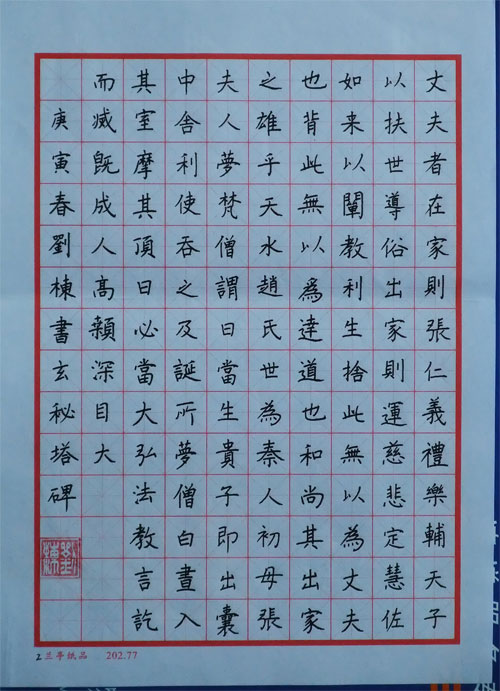 丈夫者在家則張仁義禮樂輔天子
以扶世導俗出家則運慈悲定慧佐
如来以闡教利生捨此無以為丈夫
也背此無以爲達道也和尚其出家
之雄乎天水趙氏世為秦人初母張
夫人夢梵僧謂曰當生貴子即出囊
中舍利使吞之及誕所夢僧白晝入
其室摩其頂曰必當大弘法教言訖
而滅既成人髙顙深目大
庚寅春劉棟書玄秘塔碑
兰亭纸品 202.77